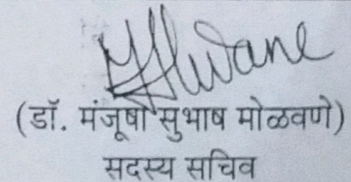 (डॉ. मंजूषा सुभाष मोळवणे)
सदस्य सचिव